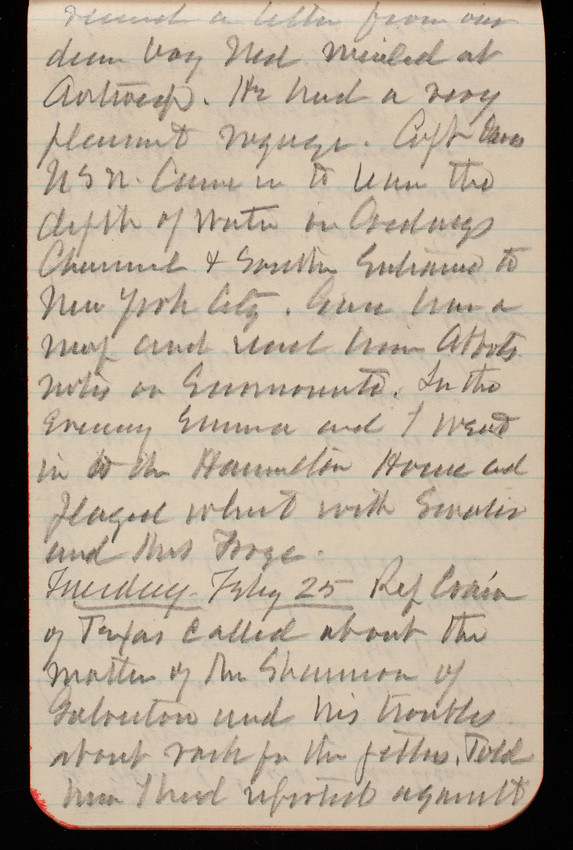 received a letter from our
dear boy Ned mailed at
Antwerp. He had a very
pleasant voyage. Capt Davis
USN. Came in to learn the
depth of water in Gedneys
Channel & Southern Entrance to
New York City. Gave him a
map and read him Abbots
notes on Encroachments. In the
Evening Emma and I went
in to the Hamilton House and
played whist with Senator
and Mrs Frye.
Tuesday Feby 25 Rep Crain
of Texas called about the
matter of Mr Shannon of
Galveston and his troubles
about rock for the jetties. Told
him I had reported against